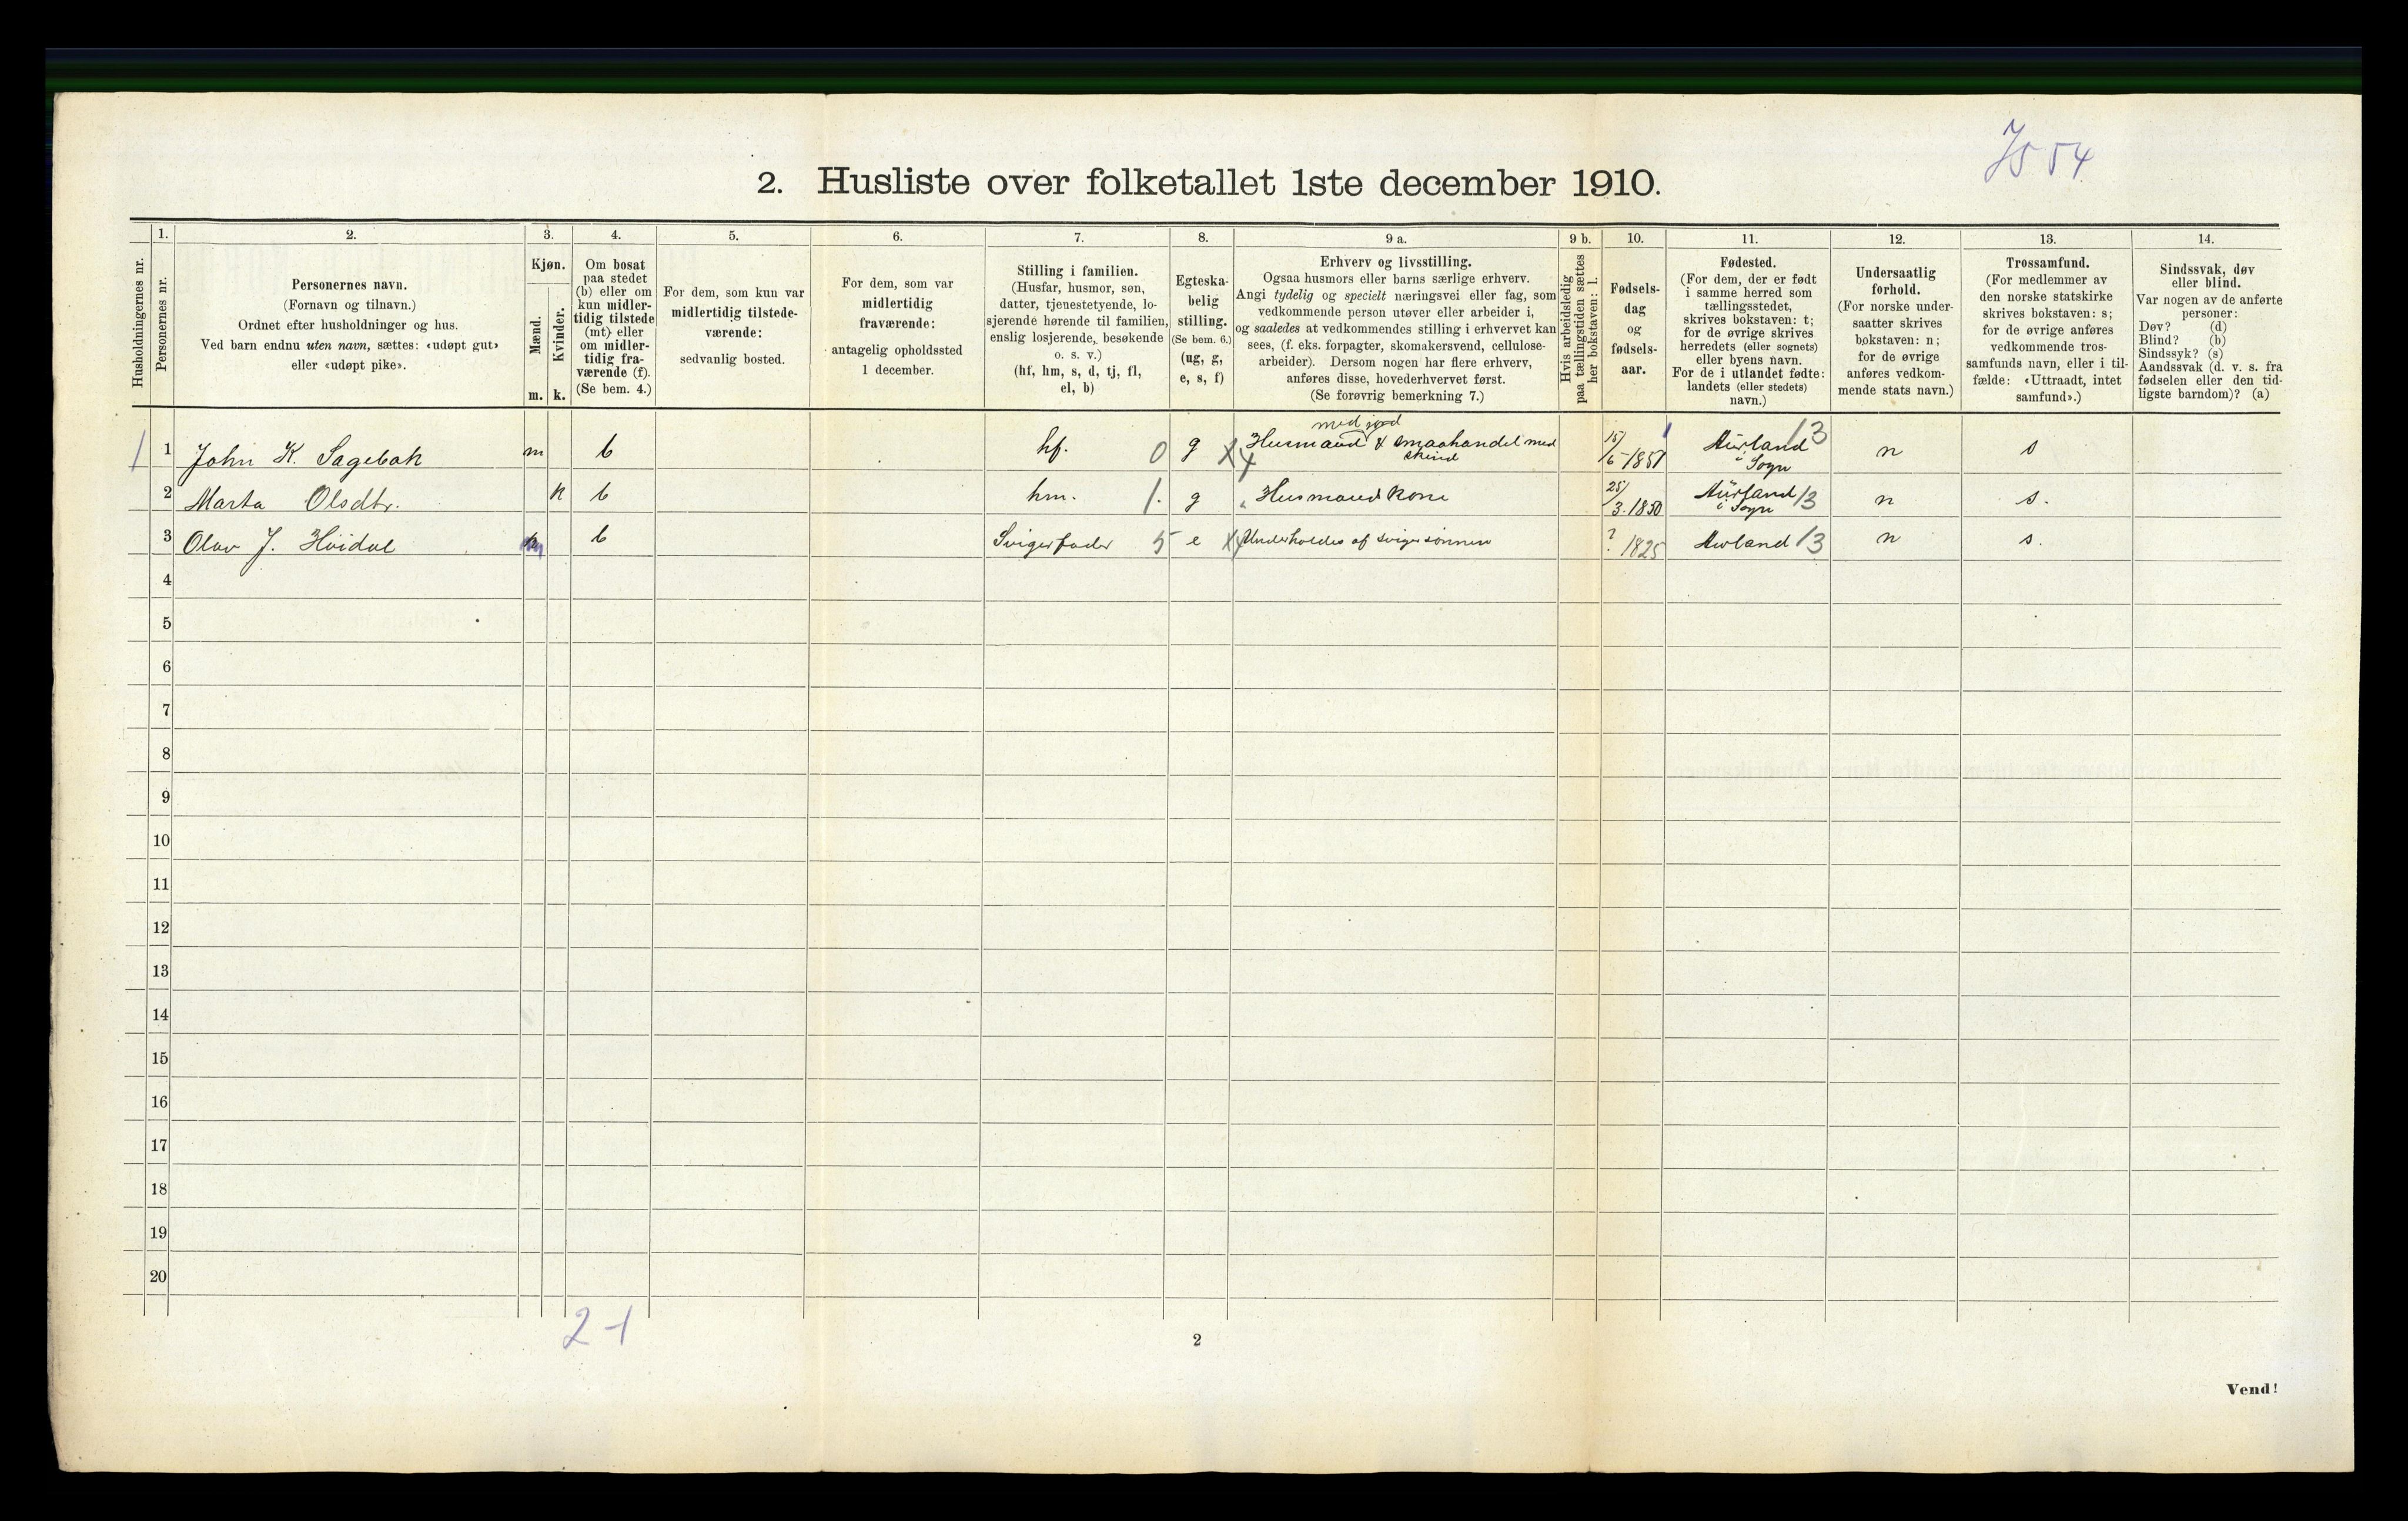 2. Husliste over folketallet 1ste december 1910.
1. 2. 3. 4. 5. 6. 7. 8. 9 a. 9 b. 10. 11. 12. 13. 14.
Husholdningernes nr.
Personernes nr.
Personernes navn.
(Fornavn og tilnavn.)
Ordnet efter husholdninger og hus.
Ved barn endnu uten navn, sættes: «udøpt gut»
eller «udøpt pike».
Kjøn.
Mænd.
Kvinder.
m. k.
Om bosat
paa stedet
(b) eller om
kun midler-
tidig tilstede
(mt) eller
om midler-
tidig fra-
værende (f).
(Se bem. 4.)
For dem, som kun var
midlertidig tilstede-
værende:
sedvanlig bosted.
For dem, som var
midlertidig
fraværende:
antagelig opholdssted
1 december.
Stilling i familien.
(Husfar, husmor, søn,
datter, tjenestetyende, lo-
sjerende hørende til familien,
enslig losjerende, besøkende
o. s. v.)
(hf, hm, s, d, tj, fl,
el, b)
Egteska-
belig
stilling.
(Se bem. 6.)
(ug, g,
e, s, f)
Erhverv og livsstilling.
Ogsaa husmors eller barns særlige erhverv.
Angi tydelig og specielt næringsvei eller fag, som
vedkommende person utøver eller arbeider i,
og saaledes at vedkommendes stilling i erhvervet kan
sees, (f. eks. forpagter, skomakersvend, cellulose-
arbeider). Dersom nogen har flere erhverv,
anføres disse, hovederhvervet først.
(Se forøvrig bemerkning 7.)
Hvis arbeidsledig
paa tællingstiden sættes
her bokstaven: l.
Fødsels-
dag
og
fødsels-
aar.
Fødested.
(For dem, der er født
i samme herred som
tællingsstedet,
skrives bokstaven: t;
for de øvrige skrives
herredets (eller sognets)
eller byens navn.
For de i utlandet fødte:
landets (eller stedets)
navn.)
Undersaatlig
forhold.
(For norske under-
saatter skrives
bokstaven: n;
for de øvrige
anføres vedkom-
mende stats navn.)
Trossamfund.
(For medlemmer av
den norske statskirke
skrives bokstaven: s;
for de øvrige anføres
vedkommende tros-
samfunds navn, eller i til-
fælde: «Uttraadt, intet
samfund».)
Sindssvak, døv
eller blind.
Var nogen av de anførte
personer:
Døv? (d)
Blind? (b)
Sindssyk? (s)
Aandssvak (d. v. s. fra
fødselen eller den tid-
ligste barndom)? (a)
med jord
1 1 John K. Sagebak m b hf. 0 g X4 Husmand & smaahandel med 15/6-1851 Aurland 13 n s
skind i Sogn
2 Marta Olsdtr. k b hm. 1. g Husmands kone 25/3.1850 Aurland 13 n s.
i Sogn
3 Olav J. Höidal m b Svigerfader 5 e Underholdes af svigersønnen ? 1825 Aurland 13 n s.
4
5
6
7
8
9
10
11
12
13
14
15
16
17
18
19
20
2-1
2
Vend!